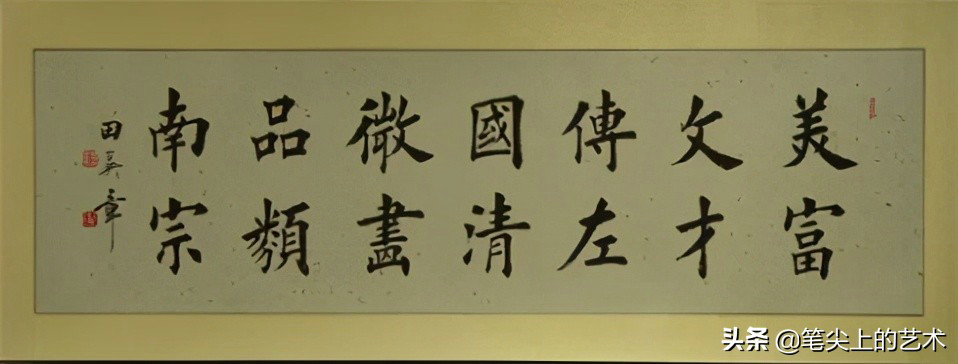 美富
文才
傳左
國清
微畫
品類
南宗
田英章
头条 @笔尖上的艺术